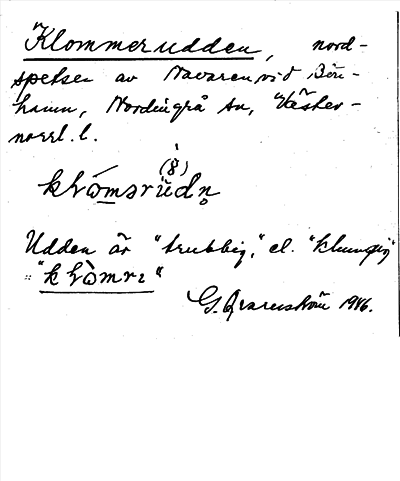 Klommerudden, nord-
spetsen av Navaren vid Bön-
hamn, Nordingrå sn, Väster-
norrl. l.
Udden är "trubbig," el. "klumpig"
G. Qvarnström 1946.